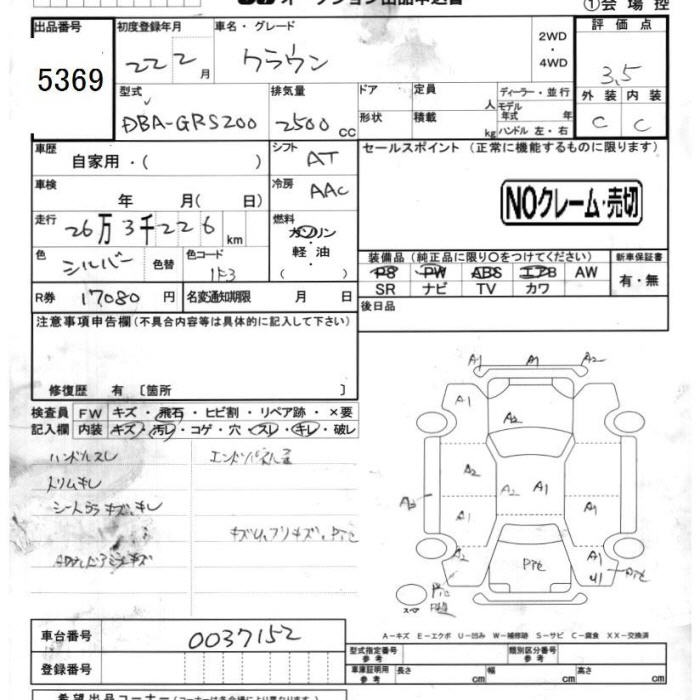 ①会場控
出品番号
5369
初度登録年月
22 2 月
車名・グレード
クラウン
2WD
・
4WD
評価点
3.5
外装 内装
C C
型式
DBA-GRS200
排気量
2500 cc
ドア
定員 人
ディーラー・並行
モデル年式 年
形状
積載 kg
ハンドル 左・右
車歴
自家用・( )
シフト
AT
セールスポイント (正常に機能するものに限ります)
車検
年 月( 日)
冷房
AAC
NOクレーム・売切
走行
26万3千226 km
燃料
ガソリン
軽油
( )
色
シルバー
色替
色コード
1F3
装備品 (純正品に限り○をつけてください)
新車保証書
PS PW ABS エアB AW
有・無
SR ナビ TV カワ
R券 17080 円
名変通知期限 月 日
後日品
注意事項申告欄 (不具合内容等は具体的に記入して下さい)
修復歴 有 [箇所 ]
検査員 FW キズ・飛石・ヒビ割・リペア跡・×要
記入欄 内装 キズ・汚レ・コゲ・穴・スレ・キレ・破レ
ハンドルスレ
トリムキレ
A1 A1 A2
A1
A2
A2
A2 A2 A1
A1 A1
A2
A1
U1
スペア
A－キズ E－エクボ U－凹ミ W－補修跡 S－サビ C－腐食 XX－交換済
車台番号 0037152
登録番号
型式指定番号 参考
類別区分番号 参考
車庫証明用 参考 長さ cm 幅 cm 高さ cm
希望出品コーナー